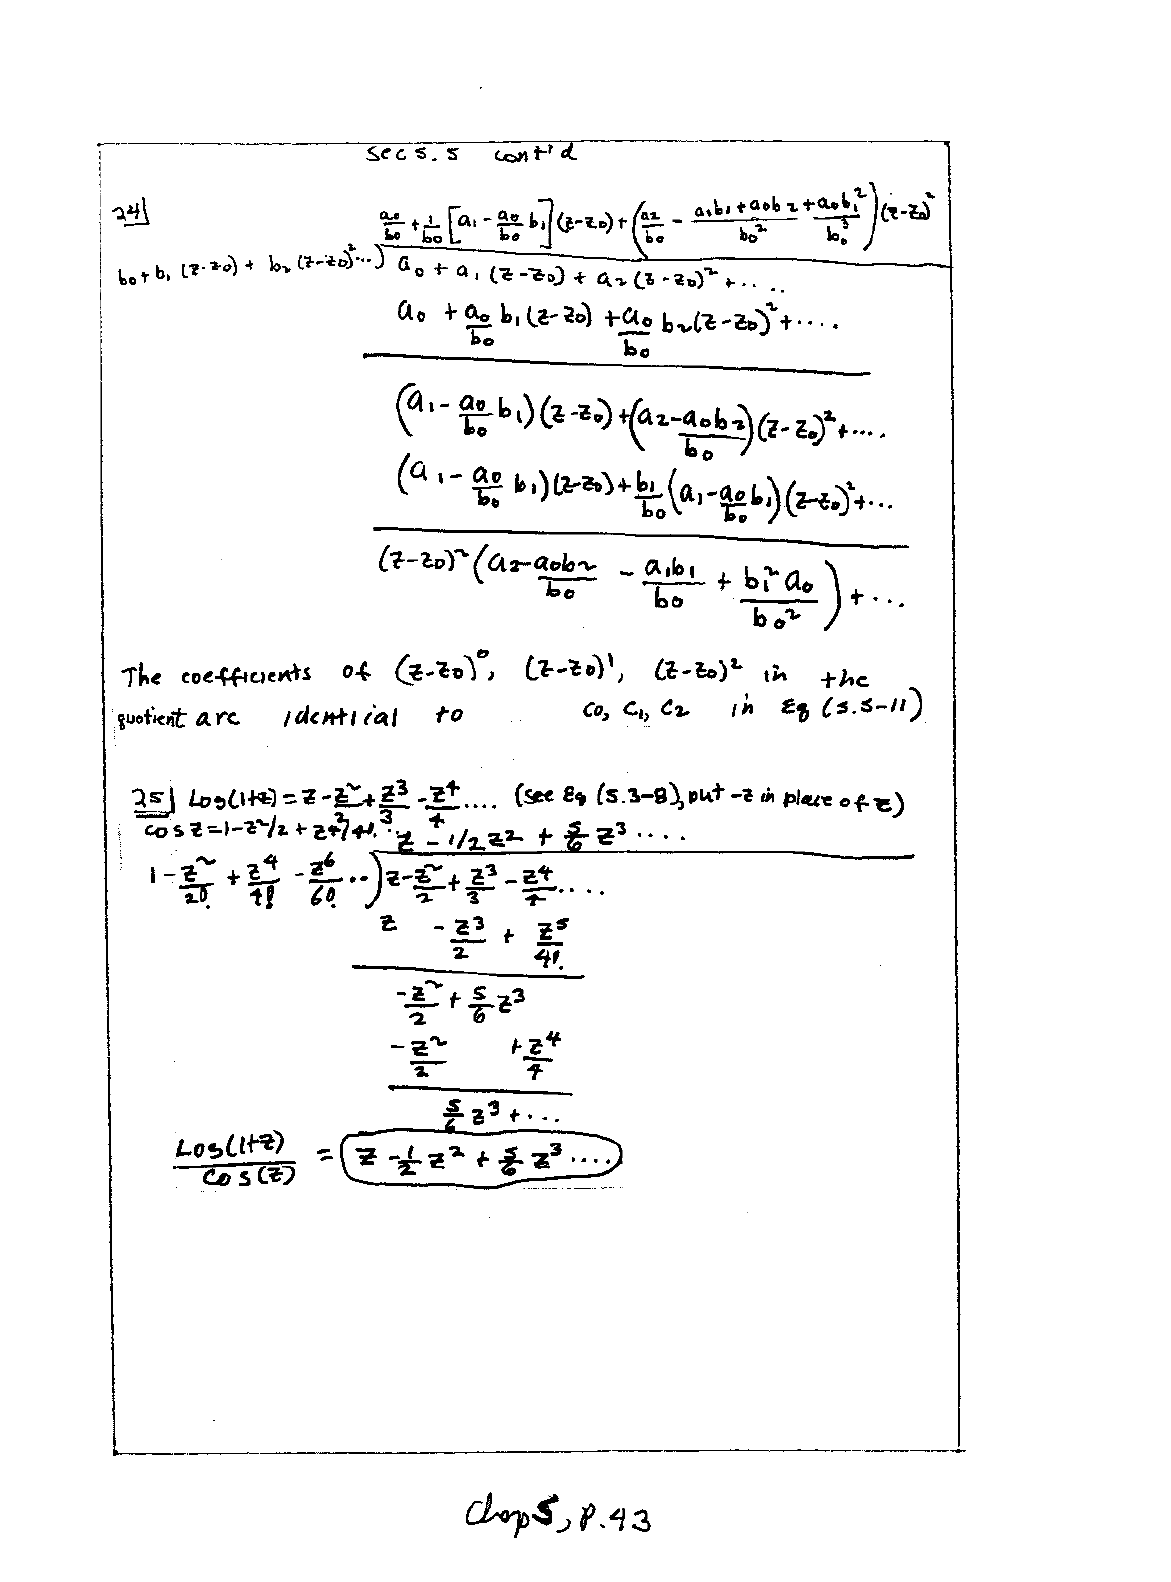 sec 5.5 cont'd
24|
a0/b0 + 1/b0 [a1 - a0/b0 b1](z-z0) + (a2/b0 - (a1b1+a0b2)/b0² + a0b1²/b0³)(z-z0)²
b0+b1(z-z0)+ b2(z-z0)²...) a0 + a1(z-z0) + a2(z-z0)² + ....
a0 + a0/b0 b1(z-z0) + a0/b0 b2(z-z0)² + ....
(a1 - a0/b0 b1)(z-z0) + (a2 - a0b2/b0)(z-z0)² + ....
(a1 - a0/b0 b1)(z-z0) + b1/b0 (a1 - a0/b0 b1)(z-z0)² + ...
(z-z0)² (a2 - a0b2/b0 - a1b1/b0 + b1² a0/b0²) + ...
The coefficients of (z-z0)⁰, (z-z0)¹, (z-z0)² in the
quotient are identical to c0, c1, c2 in Eq (5.5-11)
25| Log(1+z) = z - z²/2 + z³/3 - z⁴/4 .... (see Eq (5.3-8), put -z in place of z)
cos z = 1 - z²/2 + z⁴/4! ... z - 1/2 z² + 5/6 z³ ....
1 - z²/2! + z⁴/4! - z⁶/6! ..) z - z²/2 + z³/3 - z⁴/4 ....
z - z³/2 + z⁵/4!
-z²/2 + 5/6 z³
-z²/2 + z⁴/4
5/6 z³ + ...
Log(1+z)/cos(z) = z - 1/2 z² + 5/6 z³ ....
Chap 5, p.43